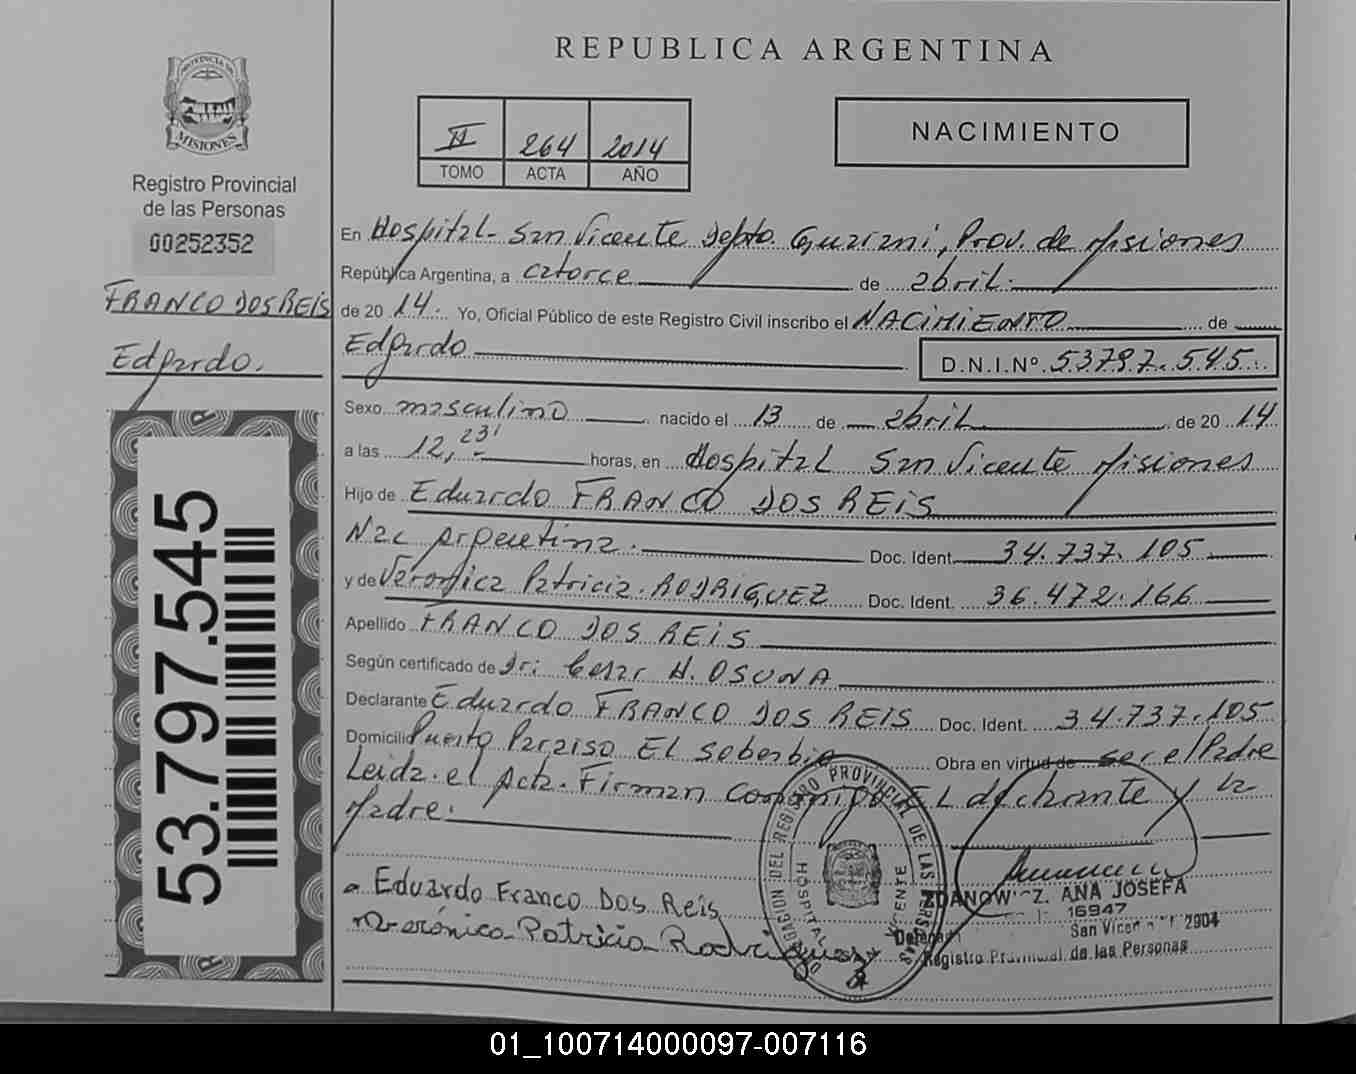 REPUBLICA ARGENTINA
PROVINCIA DE
MISIONES
Registro Provincial
de las Personas
00252352
FRANCO DOS REIS
Edgardo.
53.797.545
II 264 2014
TOMO ACTA AÑO
NACIMIENTO
En Hospital - San Vicente Depto. Guarani, Prov. de Misiones
República Argentina, a catorce de abril.
de 20 14. Yo, Oficial Público de este Registro Civil inscribo el NACIMIENTO de
Edgardo D.N.I.Nº. 53797.545.
Sexo masculino nacido el 13 de abril de 20 14
a las 12,23' horas, en Hospital San Vicente Misiones
Hijo de Eduardo FRANCO DOS REIS
Nac argentina. Doc. Ident. 34.737.105
y de Veronica Patricia RODRIGUEZ Doc. Ident. 36.472.166
Apellido FRANCO DOS REIS
Según certificado de Dr: Cesar H. OSUNA
Declarante Eduardo FRANCO DOS REIS Doc. Ident. 34.737.105
Domicilio Puerto Paraiso El Soberbio Obra en virtud de ser el Padre
Leida el Acta. Firman Conmigo EL declarante y la
Madre.
Eduardo Franco Dos Reis
Verónica Patricia Rodriguez
DELEGACION DEL REGISTRO PROVINCIAL DE LAS PERSONAS
HOSPITAL VICENTE
ZDANOWICZ. ANA JOSEFA
16947
San Vicente 2904
Registro Provincial de las Personas
01_100714000097-007116